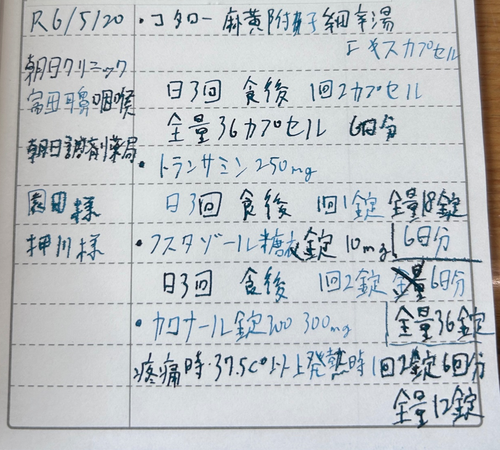 R6/5/20
・コタロー麻黄附子細辛湯
エキスカプセル
朝日クリニック
富田耳鼻咽喉
日3回 食後 1回2カプセル
全量36カプセル 6日分
朝日調剤薬局
・トランサミン250mg
園田様
日3回 食後 1回1錠 全量18錠
押川様
・フスタゾール糖衣錠 10mg 6日分
日3回 食後 1回2錠 6日分
・カロナール錠200 300mg 全量36錠
疼痛時・37.5C°以上発熱時1回2錠6回分
全量12錠